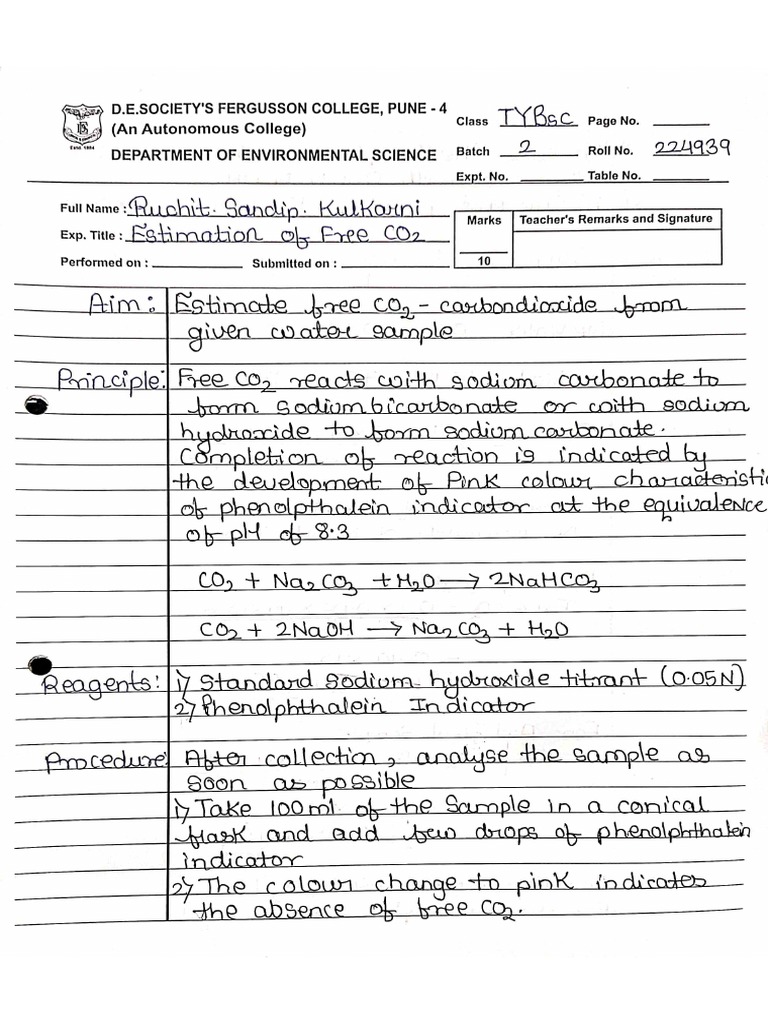 D.E.SOCIETY'S FERGUSSON COLLEGE, PUNE - 4
(An Autonomous College)
DEPARTMENT OF ENVIRONMENTAL SCIENCE
Class TYBsc Page No.
Batch 2 Roll No. 224939
Expt. No. Table No.
Full Name : Ruchit. Sandip. Kulkarni
Exp. Title : Estimation of Free CO2
Performed on : Submitted on :
Marks Teacher's Remarks and Signature
10
Aim: Estimate free CO2 - carbondioxide from
given water sample
Principle: Free CO2 reacts with sodium carbonate to
form sodiumbicarbonate or with sodium
hydroxide to form sodium carbonate.
Completion of reaction is indicated by
the development of Pink colour characteristic
of phenolpthalein indicator at the equivalence
of pH of 8.3
CO2 + Na2CO3 + H2O → 2NaHCO3
CO2 + 2NaOH → Na2CO3 + H2O
Reagents: 1) Standard Sodium hydroxide titrant (0.05N)
2) Phenolphthalein Indicator
Procedure: After collection, analyse the sample as
soon as possible
1) Take 100ml of the Sample in a conical
flask and add few drops of phenolphthalein
indicator
2) The colour change to pink indicates
the absence of free CO2.